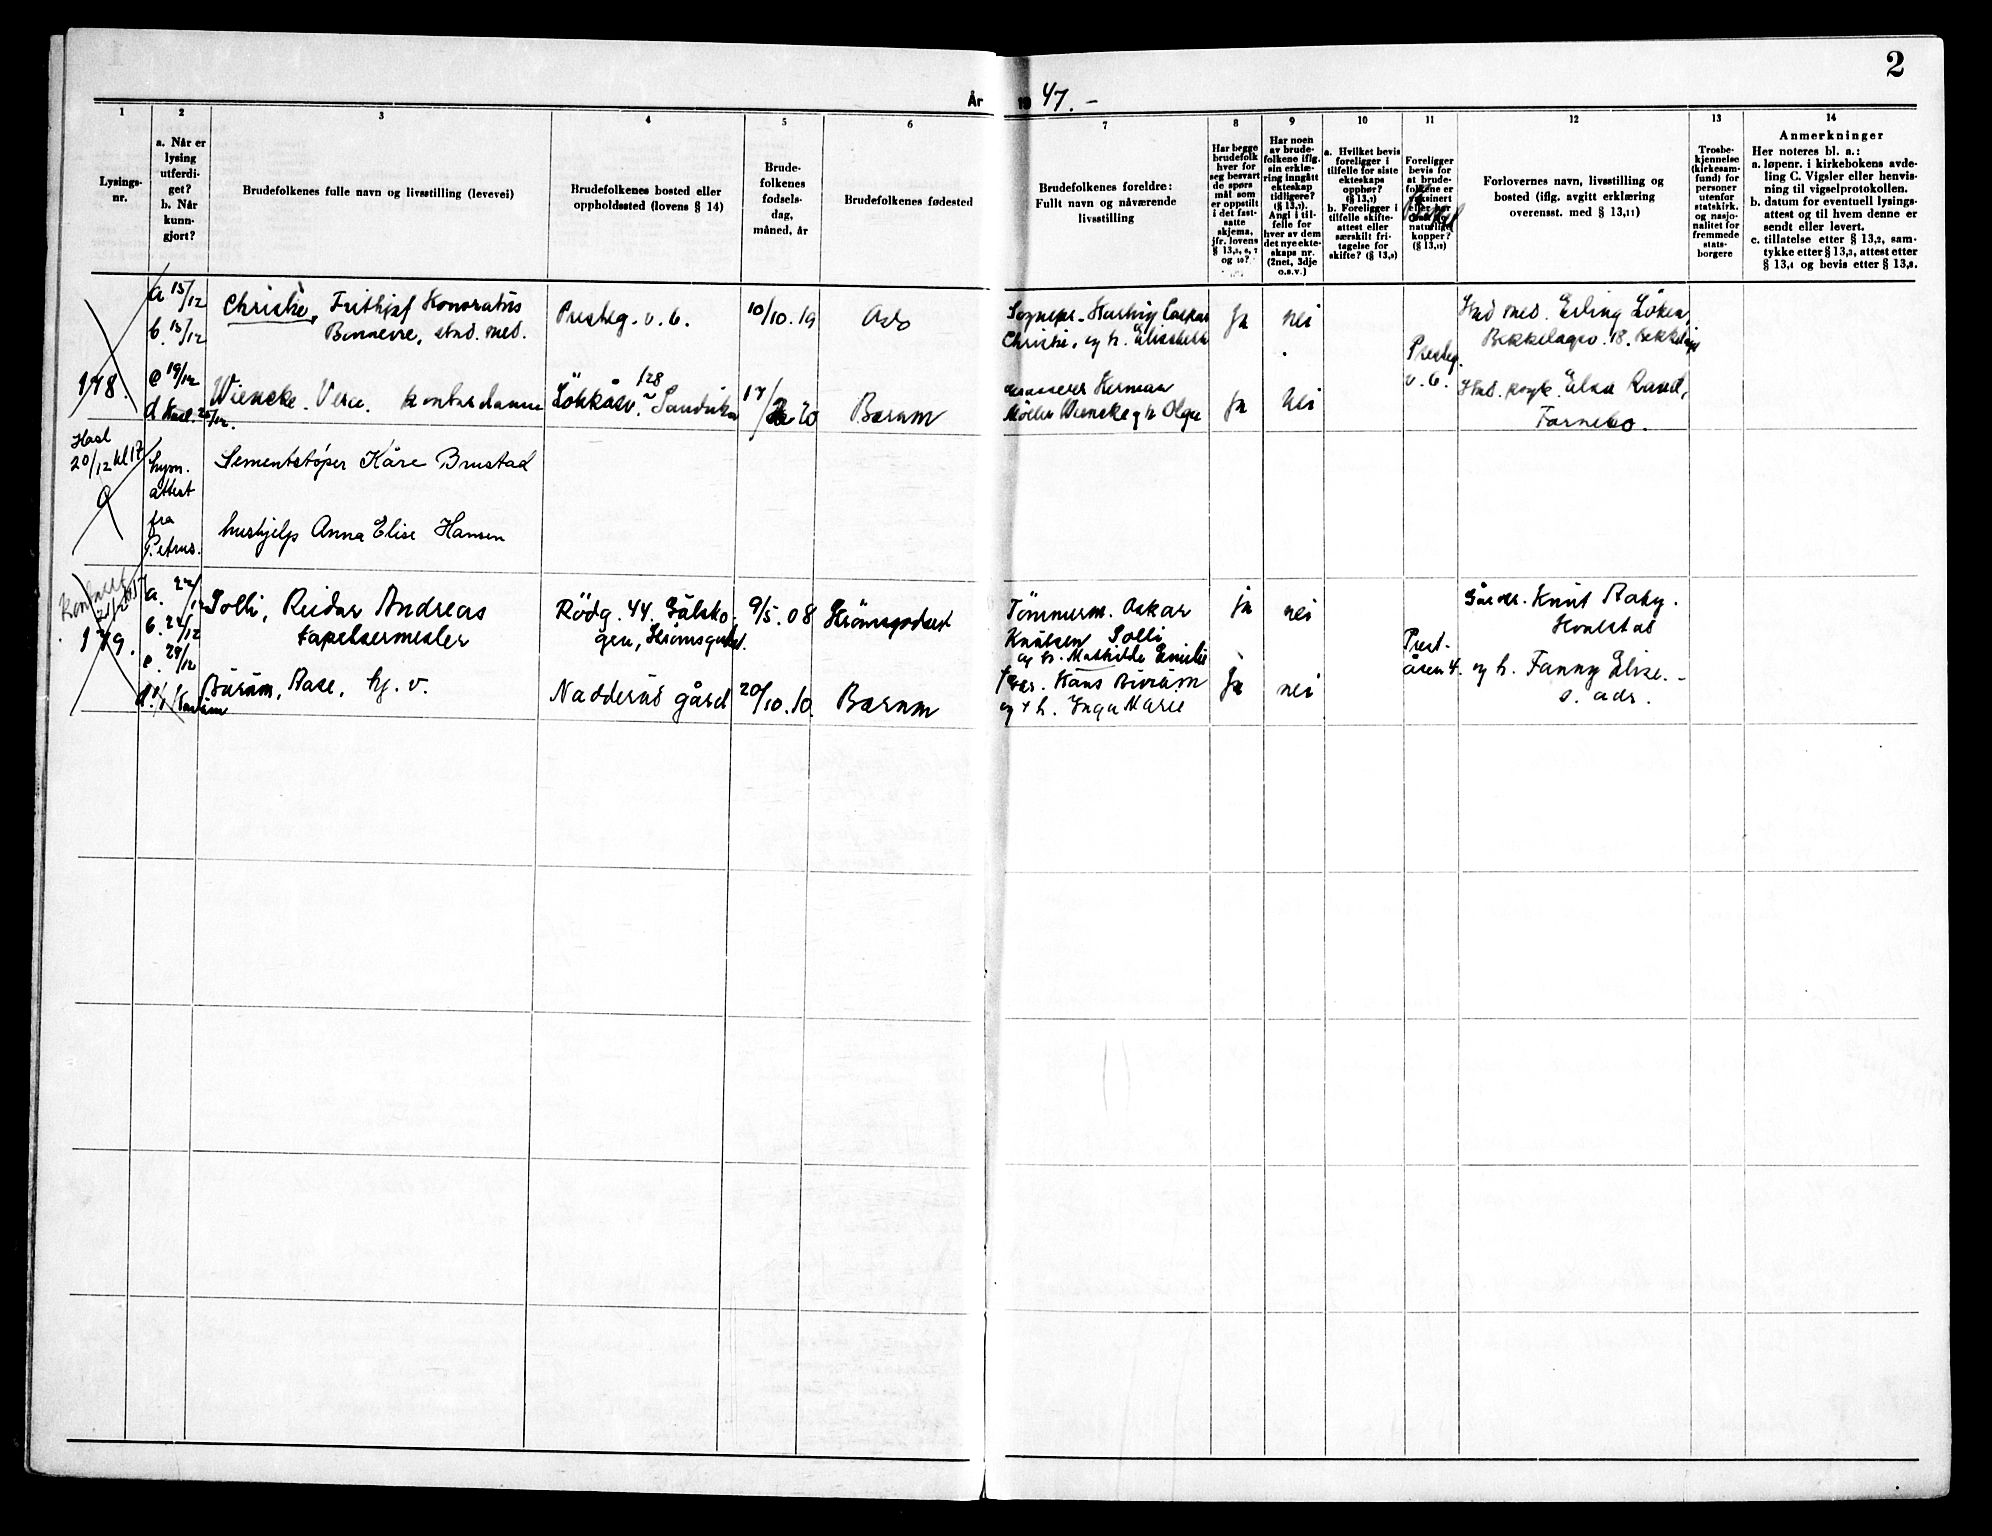 2
År 19 47. -
1
2
3
4
5
6
7
8
9
10
11
12
13
14
Lysings-
nr.
a. Når er
lysing
utferdi-
get?
b. Når
kunn-
gjort?
Brudefolkenes fulle navn og livsstilling (levevei)
Brudefolkenes bosted eller
oppholdssted (lovens § 14)
Brude-
folkenes
fødsels-
dag,
måned, år
Brudefolkenes fødested
Brudefolkenes foreldre:
Fullt navn og nåværende
livsstilling
Har begge
brudefolk
hver for
seg besvart
de spørs-
mål som
er oppstilt
i det fast-
satte
skjema,
jfr. lovens
Har noen
av brude-
folkene iflg.
sin erklæ-
ring inngått
ekteskap
tidligere?
(§ 13,7).
Angi i til-
felle for
hver av dem
det nye ekte-
skaps nr.
(2net, 3dje
o.s.v.)
a. Hvilket bevis
foreligger i
tilfelle for siste
ekteskaps
opphør?
(§ 13,7)
b. Foreligger i
tilfelle skifte-
attest eller
særskilt fri-
tagelse for
skifte? (§ 13,8)
Foreligger
bevis for
at brude-
folkene er
vaksinert
eller har
hatt
naturlige
kopper?
Forlovernes navn, livsstilling og
bosted (iflg. avgitt erklæring
overensst. med § 13,11)
Trosbe-
kjennelse
(kirkesam-
fund) for
personer
utenfor
statskirk.
og nasjo-
nalitet for
fremmede
stats-
borgere
Anmerkninger
Her noteres bl. a.:
a. løpenr. i kirkebokens avde-
ling C. Vigsler eller henvis-
ning til vigselprotokollen.
b. datum for eventuell lysings-
attest og til hvem denne er
sendt eller levert.
c. tillatelse etter § 13,2, sam-
tykke etter § 13,3, attest etter
§ 13,4 og bevis etter § 13,5.
178.
a 15/12
b. 15/12
c 19/12
d Hasl. 20/12.
Christie, Frithjof Konoratus
Bennevie, stud. med.
Presteg. v. b.
10/10.19
Oslo
Sognepr. Hartvig Caspar
Christie, og h. Elisabeth
Ja
nei
Presteg.
v. b.
Stud med. Erling Löken,
Bekkelagsv. 18. Bekkelags
Wiencke. Vesle. kontordame
Lökkåsv. 128 Sandvika
17/ 20
Bærum
kasserer Herman
Möller Wiencke og h Olga
Ja
Nei
Stud. psyk. Elsa Rand,
Fornebo.
Hasl
20/12 kl 17
0
lysn.
attest
fra
Petrus.
Sementstøper Kåre Brustad
hushjelp Anna Elise Hansen
179.
a. 22/12
b. 24/12
c. 29/12
Solli, Reidar Andreas
tapetsermester
Rödg. 44. Gülsko-
gen, Strömsgodset.
9/5. 08
Strömsgodset
Tömmerm. Oskar
Knutsen Solli
og h. Mathilde Emilie
ja
nei
Prest-
åsen 4.
Gårdbr. Knut Raby.
Hvalstad
Burum, Aase, hj. v.
Nadderud gård
20/10. 10.
Bærum
Hans Burum
og h. Inga Marie
Ja
nei
og h. Fanny Elise. -
s. adr.